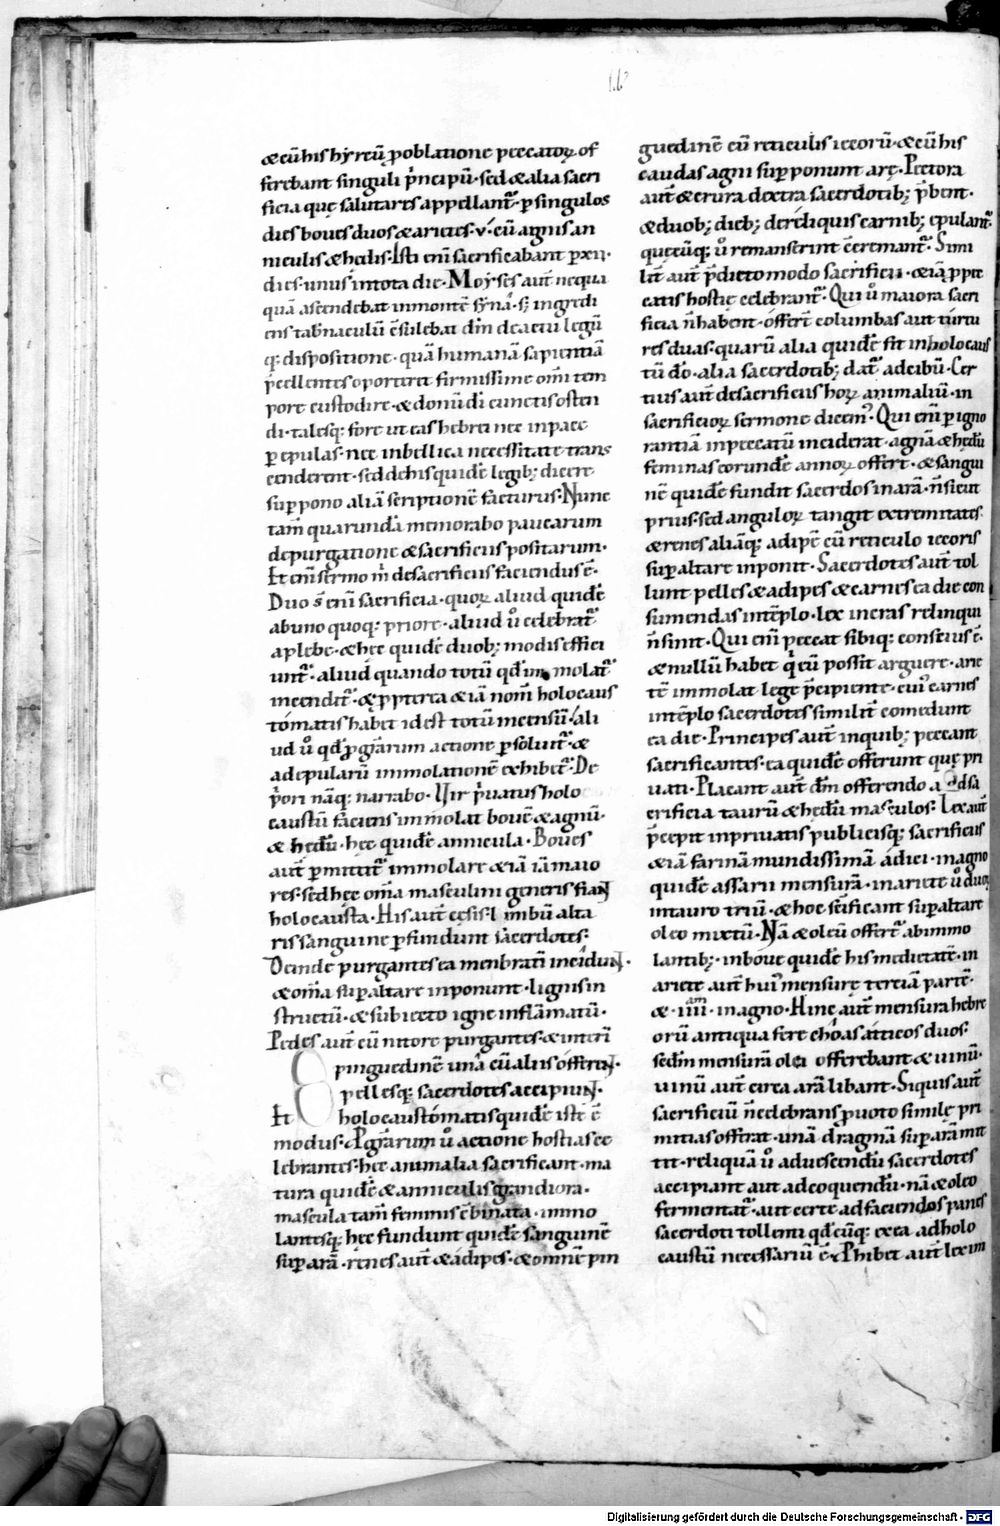 & cū his hyrcū ꝓ oblatione peccatoꝝ of
ferebant singuli p̄ncipū· sed & alia sacri
ficia quę salutares appellant᷑· ꝑ singulos
dies boues duos & arietes ·v· cū agnis an
niculis & hedis· Isti eni sacrificabant ꝑ xii·
dies· unus in tota die· Moyses aut̄ nequa
quā ascendebat in montē synā· sꝫ ingredi
ens tab̄naculū c̄sulebat dm̄ de actu legū
qꝫ dispositione· quā humanā sapientiā
p̄cellentes oporteret firmissime om̄i tem
pore custodire· & donū dī cunctis osten
di· talesqꝫ fore ut eas hebrei nec in pace
ꝑ epulas· nec in bellica necessitate trans
cenderent· sed de his quidē legibꝫ dicere
suppono aliā scriptionē facturus· Nunc
tam̄ quarundā memorabo paucarum
de purgatione & sacrificiis positarum·
Et eni sermo m̄ de sacrificiis faciendus ē·
Duo s̄ eni sacrificia· quoꝝ aliud quidē
ab uno quoqꝫ priore· aliud ů celebrat᷑
a plebe· & hęc quidē duobꝫ modis effici
unt᷑· aliud quando totū qd̄ im molat᷑
incendit᷑· & ꝓpterea & iā nom̄ holocaus
tómatis habet id est totū incensū· áli
ud ů qd̄ ꝓ gr̄arum actione ꝑsoluit᷑· &
ad epularū immolationē exhibet᷑· De
p̄ori nāqꝫ narrabo· Uir p̄uatus holo
caustū faciens immolat bouē & agnū·
& hedū· hęc quidē annicula· Boues
aut̄ ꝑmittit᷑ immolare & iā iā maio
res· sed hęc om̄ia masculini generis fiaN
holocausta· His aut̄ cęsis· l imbū alta
ris sanguine ꝑfundunt sacerdotes·
Deinde purgantes ea menbratī incíduN·
& om̄ia sup altare inponunt· lignis in
structū· & subiecto igne inflāmatū·
Pedes aut̄ cū nitore purgantes· & interi
pinguedinē unā cū aliis offereN·
pellesqꝫ sacerdotes accipiuN·
Et holocaustómatis quidē iste ē
modus· Ꝓ gr̄arum ů actione hostias ce
lebrantes· hęc animalia sacrificant· ma
tura quidē & anniculis grandiora·
mascula tam̄ feminis c̄binata· immo
lantesqꝫ hęc fundunt quidē sanguinē
sup arā· renes aut̄ & ádipes· & omnē pin
guedinē cū reticulis iecorū· & cū his
caudas agni sup ponunt arę· Pectora
aut̄ & crura dextra sacerdotibꝫ p̄bent·
& duobꝫ diebꝫ de reliquis carnibꝫ epulant᷑·
quęcūqꝫ ů remanserint c̄cremant᷑· Simi
lit̄ aut̄ p̄dicto modo sacrificii· & iā ꝓ pec
catis hostię celebrant᷑· Qui ů maiora sacri
ficia n̄ habent· offert̄ columbas aut turtu
res duas· quarū alia quidē fit in holocaus
tū dō· alia sacerdotibꝫ dat᷑ ad cibū· Cer
tius aut̄ de sacrificiis hoꝝ animaliū· in
sacrificioꝝ sermone dicem᷒· Qui eni ꝑ igno
rantiā in peccatū inciderat· agnā & hedū
feminas eorundē annoꝝ offert· & sangui
nē quidē fundit sacerdos in arā· n̄ sicut
prius· sed anguloꝝ tangit extremitates·
& renes aliāqꝫ adipē cū reticulo iecoris
sup altare inponit· Sacerdotes aut̄ tol
lunt pelles & adipes & carnes ea die con
sumendas in tēplo· lex in cras relinqui
n̄ sinit· Qui eni peccat sibiqꝫ conscius ē·
& nullū habet q̇ eū possit arguere· arie
tē immolat lege p̄cipiente· cui᷒ carnes
in tēplo sacerdotes similit̄ comedunt
ea die· Principes aut̄ in quibꝫ peccant
sacrificantes· ea quidē offerunt quę pri
uati· Placant aut̄ dm̄ offerendo a d sa
crificia taurū & hedū masculos· Lex aut̄
p̄cepit in priuatis publicisqꝫ sacrificiis
& iā farinā mundissimā ádici· in agno
quidē assarii mensurā· in ariete ů duoꝝ
in tauro triū· & hoc sc̄ificant sup altare
oleo mixtū· Nā & oleū offert᷑ ab immo
lantibꝫ· in boue quidē his medietatē· in
ariete aut̄ hui᷒ mensurę terciā partē·
& ·iiii·am̄ in agno· Hinc aut̄ mensura hebre
orū antiqua fere choas atticos duos·
sedm̄ mensurā olei offerebant & uinū·
uinū aut̄ circa arā libant· Si quis aut̄
sacrificiū n̄ celebrans ꝓ uoto similę pri
mitias offerat· unā dragmā sup arā mit
tit· reliquā ů ad uescendū sacerdotes
accipiant aut ad coquendū· nā & oleo
fermentat᷑· aut certe ad faciendos panes
sacerdoti tolleni qd̄cūqꝫ ex ea ad holo
caustū necessariū ē· Phibet aut̄ lex im
Digitalisierung gefördert durch die Deutsche Forschungsgemeinschaft - DFG